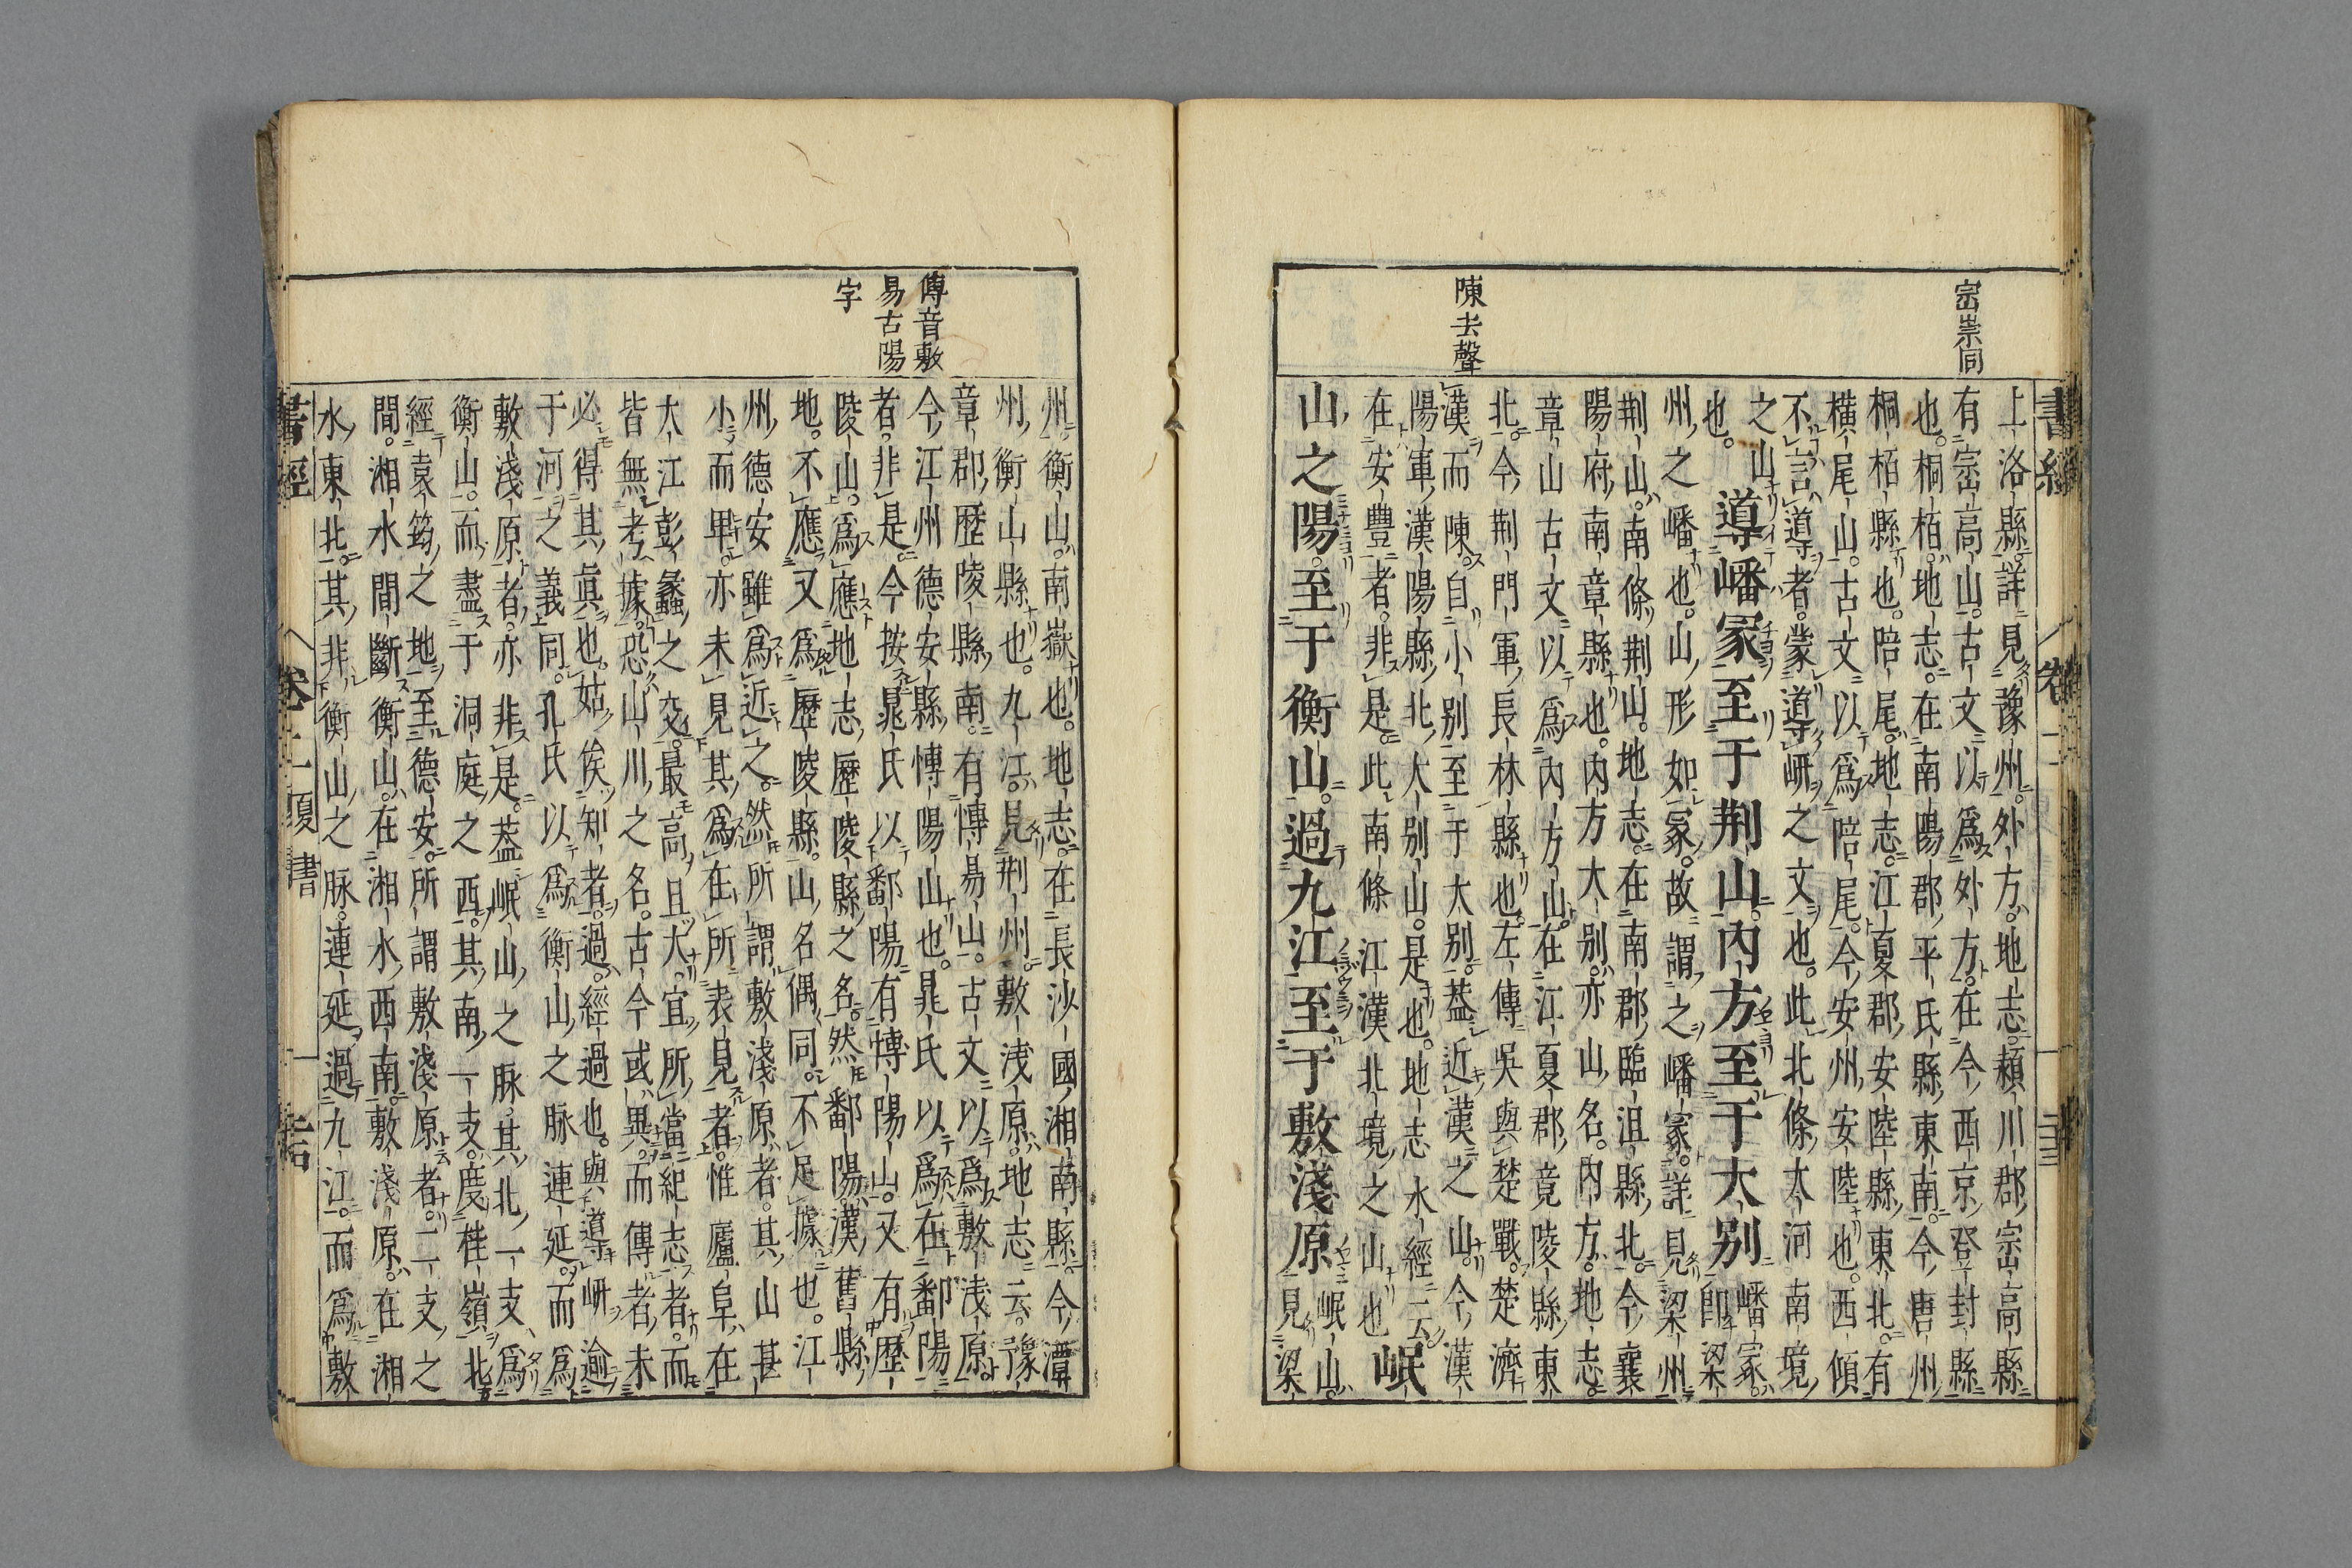 崈崇同
陳去聲
上洛縣詳見豫州。外方。地志。潁川郡、崈高縣
有崈高山。古文以爲外方。在今西京登封縣
也。桐栢。地志。在南陽郡平氏縣東南。今唐州
桐栢縣也。陪尾。地志。江夏郡安陸縣東北。有
横尾山。古文以爲陪尾。今安州安陸也。西傾
不言導者。蒙導岍之文也。此北條大河南境
之山也。導嶓冢至于荆山。内方至于大别嶓冢。即梁
州之嶓也。山形如冢。故謂之嶓冢。詳見梁州
荆山。南條荆山。地志。在南郡臨沮縣北。今襄
陽府南章縣也。内方大别。亦山名。内方。地志。
章山古文以爲内方山。在江夏郡竟陵縣東
北。今荆門軍長林縣也。左傳吳與楚戰。楚濟
漢而陳。自小别至于大别。葢近漢之山。今漢
陽軍漢陽縣北大别山。是也。地志水經云
在安豊者。非是。此南條江漢北境之山也岷
山之陽至于衡山。過九江至于敷淺原岷山。見梁
書經
卷二
傅音敷
易古陽
字
州。衡山。南嶽也。地志。在長沙國湘南縣。今潭
州衡山縣也。九江。見荆州。敷浅原。地志云。豫
章郡歴陵縣南。有愽昜山。古文以爲敷浅原。
今江州德安縣愽陽山也。晁氏以爲在鄱陽
者。非是。今按晁氏以鄱陽有愽陽山。又有歴
陵山。爲應地志歴陵縣之名。然鄱陽漢舊縣
地。不應又爲歴陵縣。山名偶同。不足據也。江
州德安雖爲近之。然所謂敷淺原者。其山甚
小而卑。亦未見其爲在所表見者。惟廬阜在
大江彭蠡之交。最高且大。宜所當紀志者。而
皆無考據。恐山川之名。古今或異。而傳者未
必得其眞也。姑俟知者。過。經過也。與導岍逾
于河之義同。孔氏以爲衡山之脉連延。而爲
敷淺原者。亦非是。葢岷山之脉。其北一支爲
衡山。而盡于洞庭之西。其南一支。度桂嶺北
經袁筠之地至德安。所謂敷淺原者。二支之
間。湘水間斷衡山。在湘水西南。敷淺原。在湘
水東北。其非衡山之脉。連延過九江。而爲敷
書經
卷二
夏書